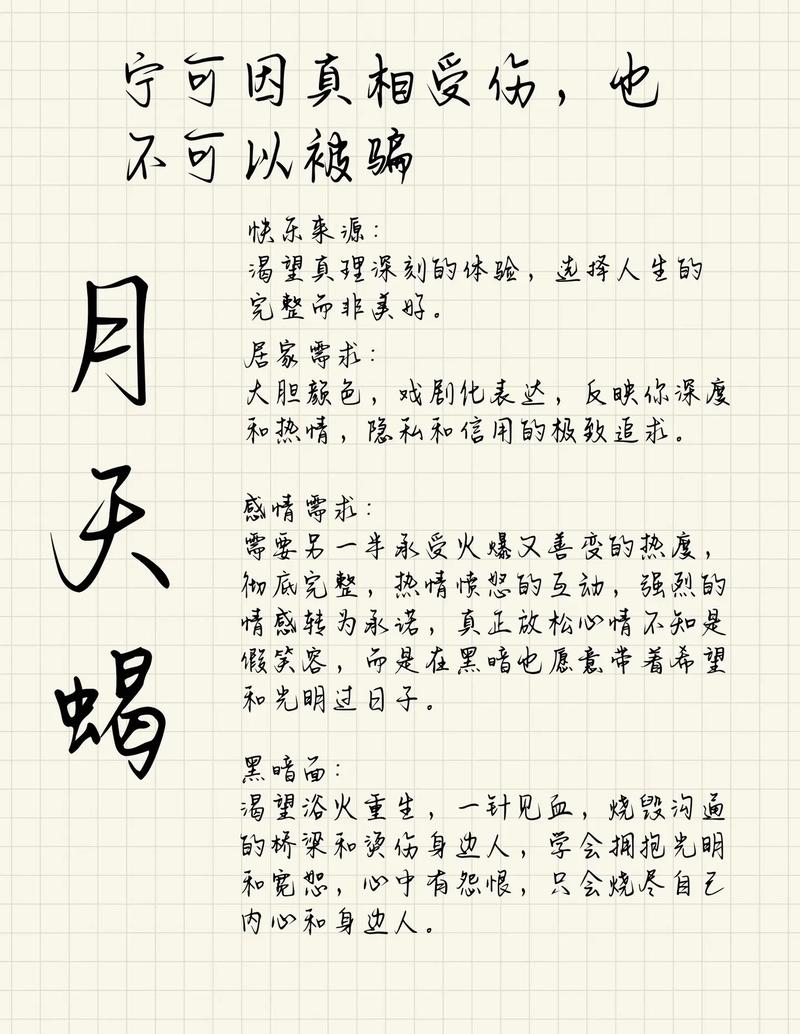 宁可因真相受伤，也
不可以被骗
月天蝎
快乐来源：
渴望真理深刻的体验，选择人生的
完整而非美好。
居家需求：
大胆颜色，戏剧化表达，反映你深度
和热情，隐私和信用的极致追求。
感情需求：
需要另一半承受火爆又善变的热度，
彻底完整，热情愤怒的互动，强烈的
情感转为承诺，真正放松心情不知是
假笑容，而是在黑暗也愿意带着希望
和光明过日子。
黑暗面：
渴望浴火重生，一针见血，烧毁沟通
的桥梁和烫伤身边人，学会拥抱光明
和宽恕，心中有怨恨，只会烧尽自己
内心和身边人。